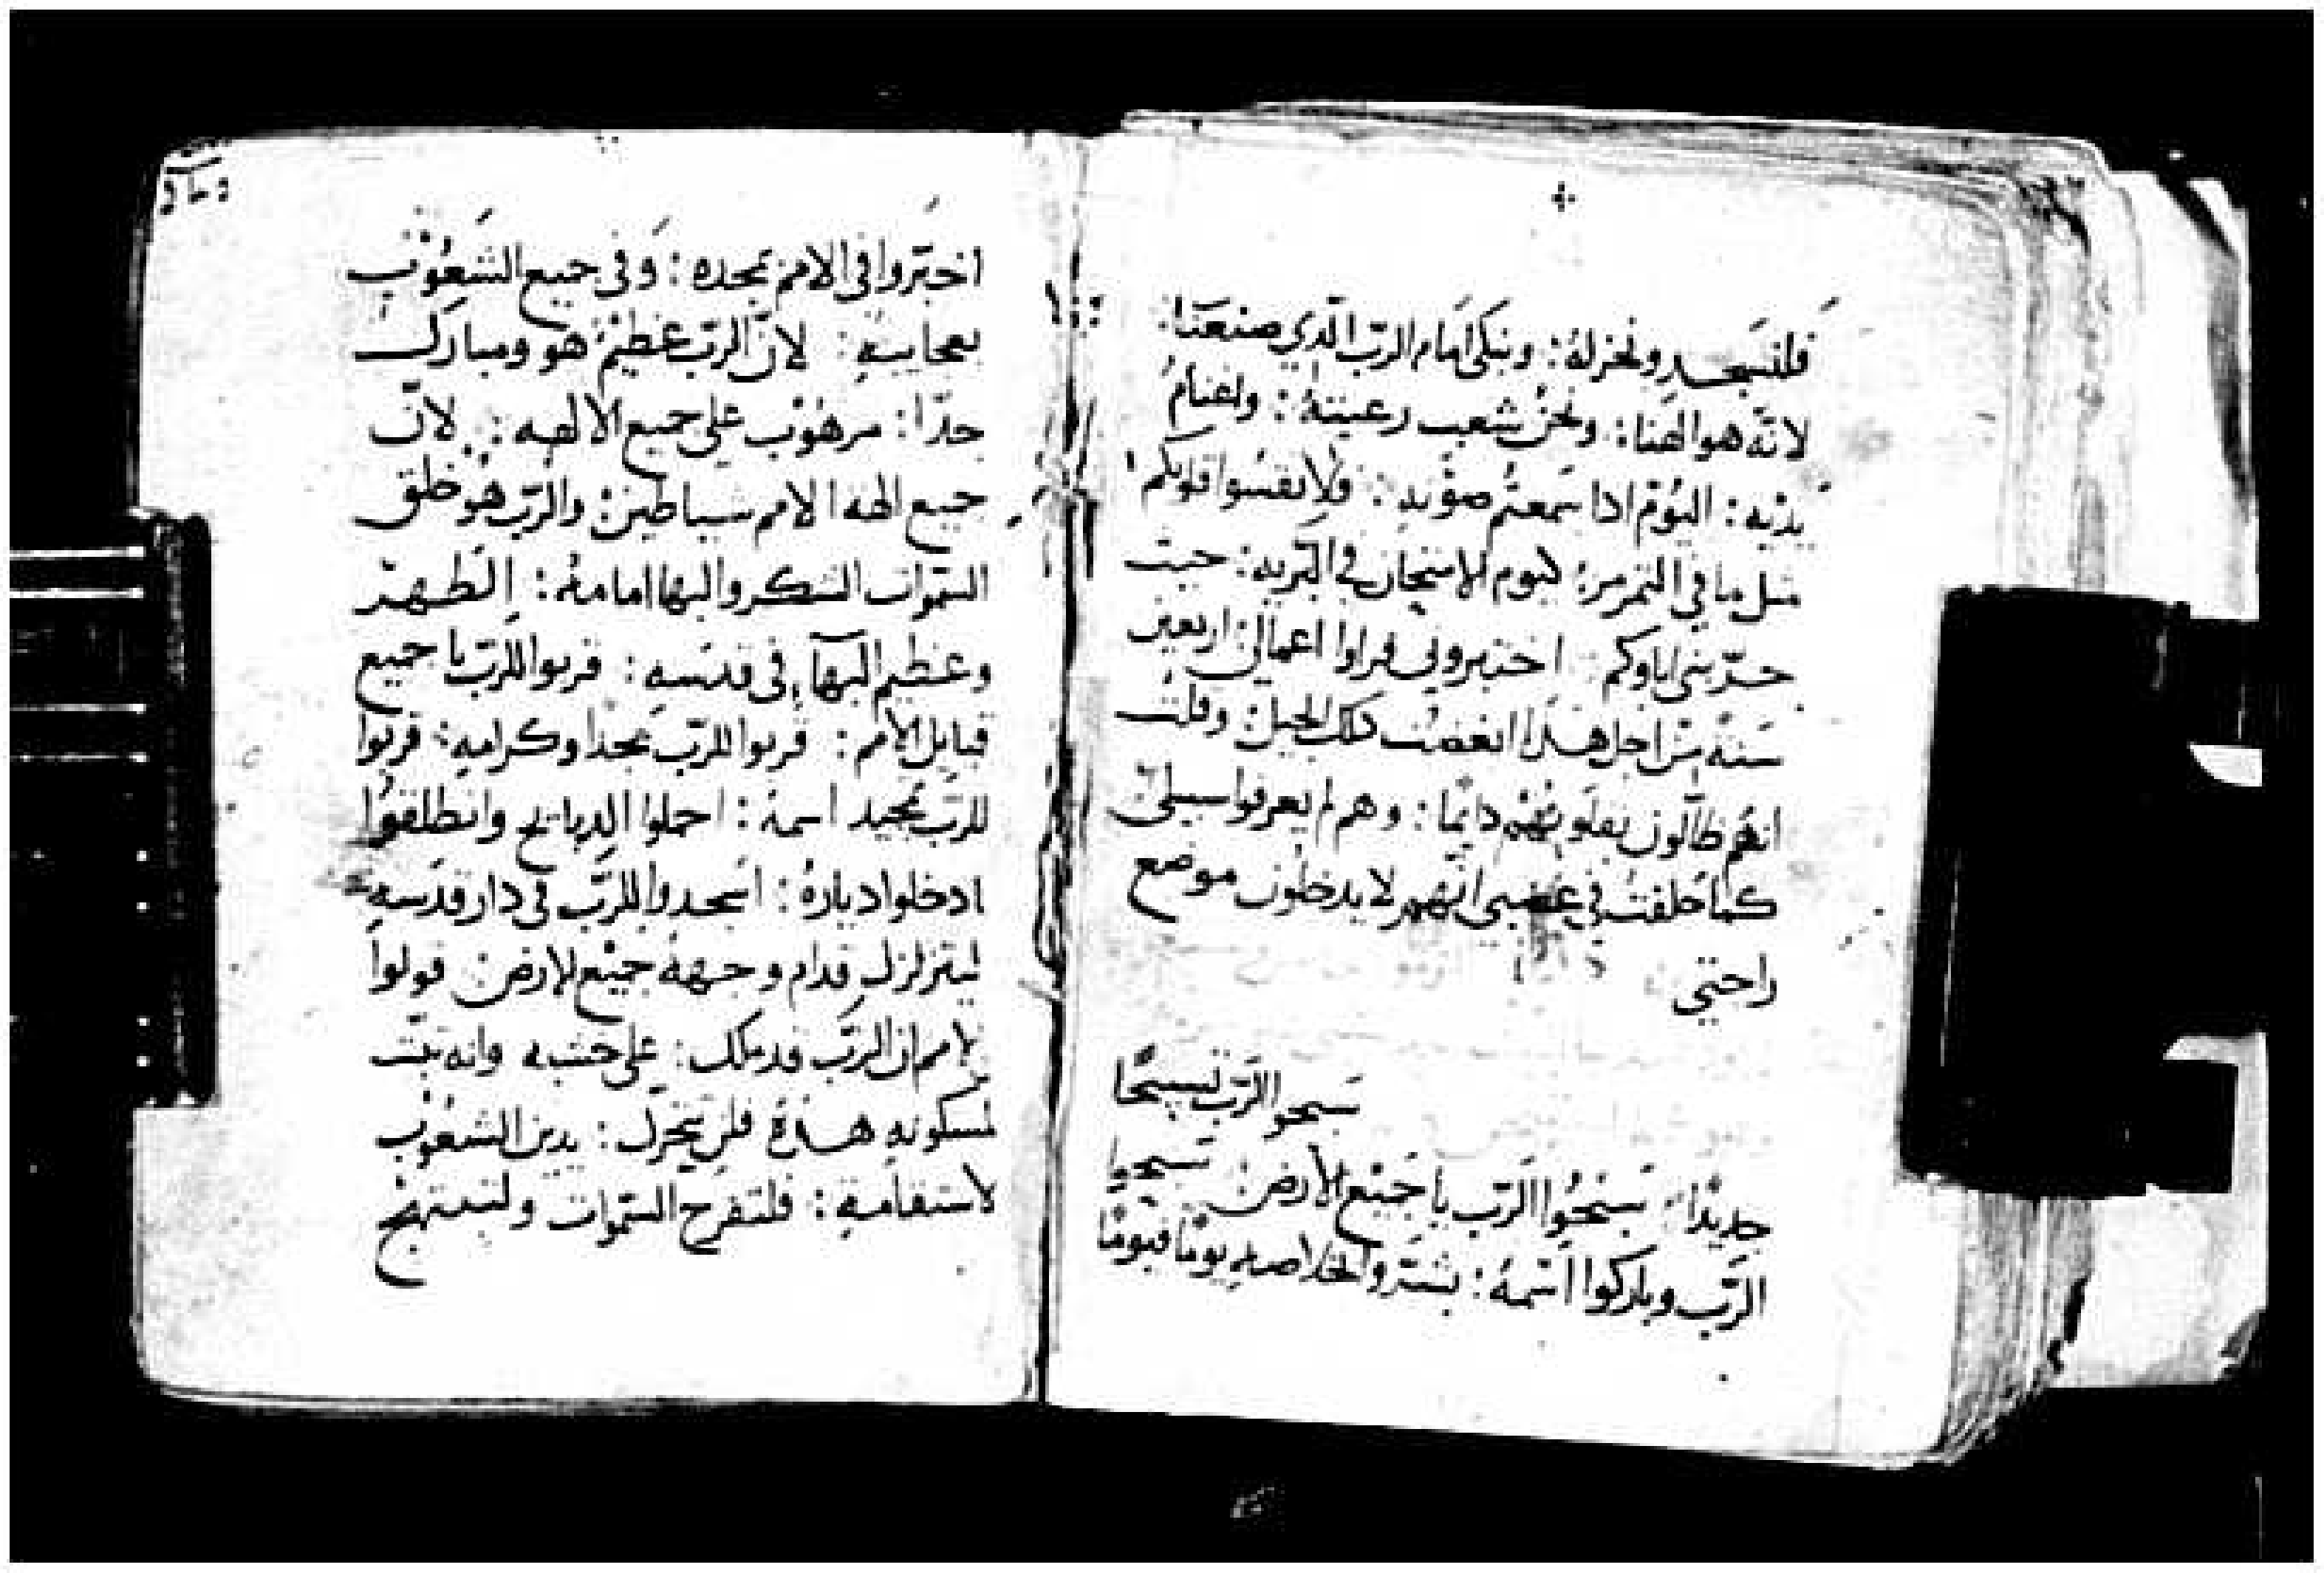 فلنسجد ونخر له : ونبكى امام الرّب الّذي صنعنا :
لانّه هو الهنا : ونحن شعب رعيته : واغنام
يديه : اليوم اذا سمعتم صوته : فلا تقسوا قلوبكم
مثل ما في التمرمر : كيوم الامتحان في البّريه : حيث
جرّبنى اباوكم : اختبروني وراوا اعمالى : اربعين
سنة من اجل هذا ابغضت ذلك الجيل : وقلت
انهم ظالّون بقلوبهم دايما : وهم لم يعرفوا سبيلى :
كما حلفت في غضبي انّهم لا يدخلون موضع
راحتي
سبحوا الرّب تسبيحًا
جديدًا : سبحوا الرّب يا جميع الارض : سبحوا
الرّب وباركوا اسمه : بشّروا بخلاصه يومًا فيومًا
اخبّروا في الامم بمجده : وفى جميع الشعوب
بعجايبه : لانّ الرّب عظيم هو ومبارك
جدّا : مرهوب على جميع الالهه : لانّ
جميع الهة الامم شياطين : والرّب هو خلق
السّموات الشكر والبها امامه : الطهر
وعظيم البهآء في قدسه : قربوا للرّب يا جميع
قبايل الامم : قربوا للرّب مجدا وكرامه : قربوا
للرّب تمجيد اسمه : احملوا الدبايح وانطلقوا
ادخلوا دياره : اسجدوا للرّب في دار قدسه
ليتزلزل قدام وجهه جميع الارض : قولوا
في الامم ان الرّب قد ملك : على خشبه وانه ثبّت
المسكونه هذه فلن تتحرّك : يدين الشعوب
بالاستقامه : فلتفرح السّموات ولتبتهج